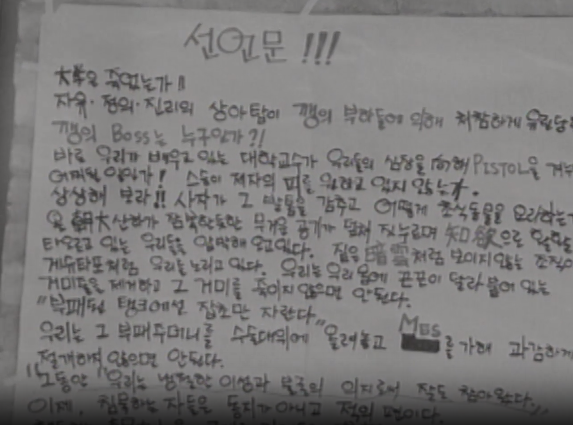 선언문 !!!
大学은 죽었는가!!
자유·정의·진리의 상아탑이 깽의 부하들에 의해 처참하게 유린당
깽의 Boss는 누구인가?!
바로 우리가 배우고 있는 대학교수가 우리들의 심장을 향해 PISTOL을 겨누
어찌된 일인가! 스승이 제자의 피를 원하고 있지 않는가.
상상해 보라!! 사자가 그 발톱을 감추고 어떻게 초식동물을 요리하는
타오르고 있는 우리들을 압박해 오고있다. 짙은 暗雲처럼 보이지않는 조직이
게슈타포처럼 우리를 노리고 있다. 우리는 우리 몸에 끈끈이 달라붙어 있는
거미들을 제거하고 그 거미를 죽이지 않으면 안된다.
"부패된 탱크에선 잡초만 자란다.
우리는 그 부패주머니를 수술대위에 올려놓고 MES를 가해 과감하게
절개하지 않으면 안된다.
"그동안 우리는 냉철한 이성과 불굴의 의지로써 잘도 참아왔다."
이제, 침묵하는 자들은 동지가 아니고 적의 편이다.